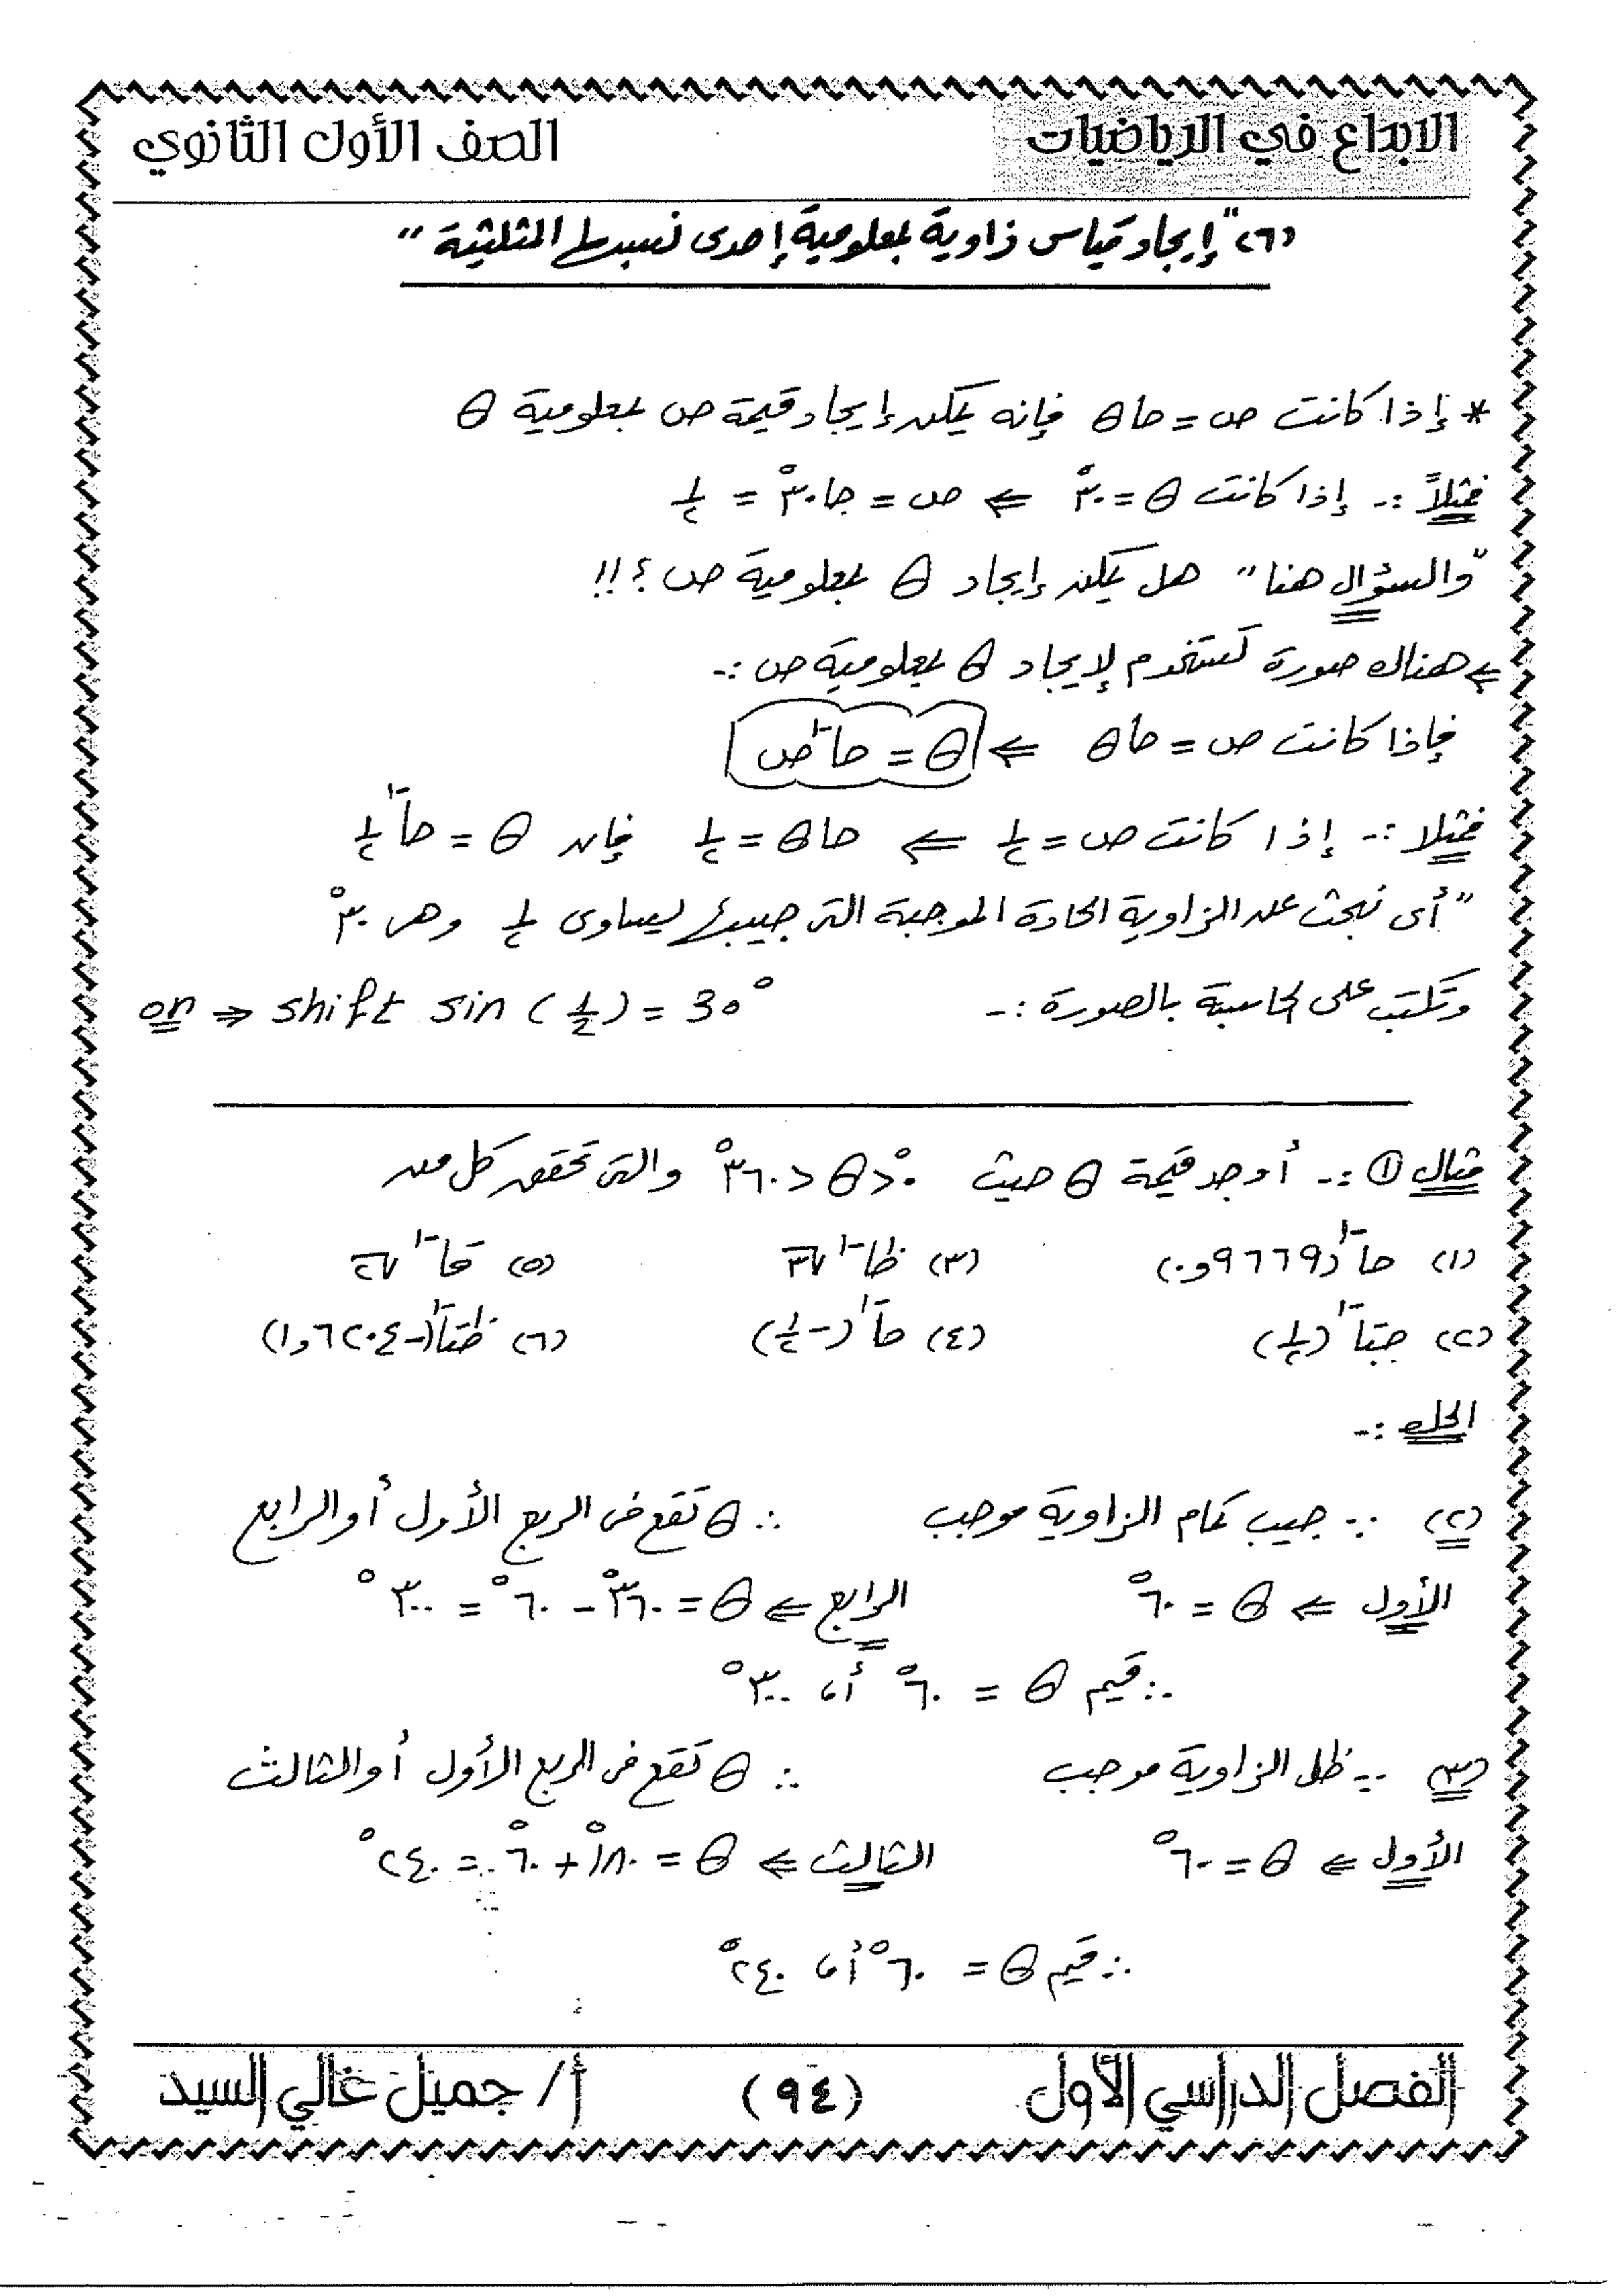 الابداع في الرياضيات الصف الأول الثانوي
(٦) "إيجاد قياس زاوية بمعلومية إحدى نسبها المثلثية"
* إذا كانت ص = حا θ فإنه يمكن إيجاد قيمة ص بمعلومية θ
فمثلاً :- إذا كانت θ = ٣٠° ⇐ ص = جا ٣٠° = ١/٢
"والسؤال هنا" هل يمكن إيجاد θ بمعلومية ص ؟!!
⇐ هناك صورة تستخدم لإيجاد θ بمعلومية ص :-
فإذا كانت ص = حا θ ⇐ θ = حا⁻¹ ص
فمثلا :- إذا كانت ص = ١/٢ ⇐ حا θ = ١/٢ فإن θ = حا⁻¹ ١/٢
"أى نبحث عن الزاوية الحادة الموجبة التى جيبها يساوى ١/٢ وهى ٣٠°
وتكتب على الحاسبة بالصورة :- on ⇒ shift sin (1/2) = 30°
مثال ① :- أوجد قيمة θ حيث ٠° < θ < ٣٦٠° والتى تحقق كل من
(١) حا⁻¹ (٠,٩٦٦٩) (٣) ظا⁻¹ √٣ (٥) قا⁻¹ √٢
(٢) جتا⁻¹ (١/٢) (٤) حا⁻¹ (-١/٢) (٦) ظتا⁻¹ (-١,٦٢٠٤)
الحل :-
(٢) ∵ جيب تمام الزاوية موجب ∴ θ تقع فى الربع الأول أو الرابع
الأول ⇐ θ = ٦٠° الرابع ⇐ θ = ٣٦٠° - ٦٠° = ٣٠٠°
∴ قيم θ = ٦٠° أ، ٣٠٠°
(٣) ∵ ظل الزاوية موجب ∴ θ تقع فى الربع الأول أو الثالث
الأول ⇐ θ = ٦٠° الثالث ⇐ θ = ١٨٠° + ٦٠° = ٢٤٠°
∴ قيم θ = ٦٠° أ، ٢٤٠°
الفصل الدراسي الأول (٩٤) أ/ جميل غالي السيد